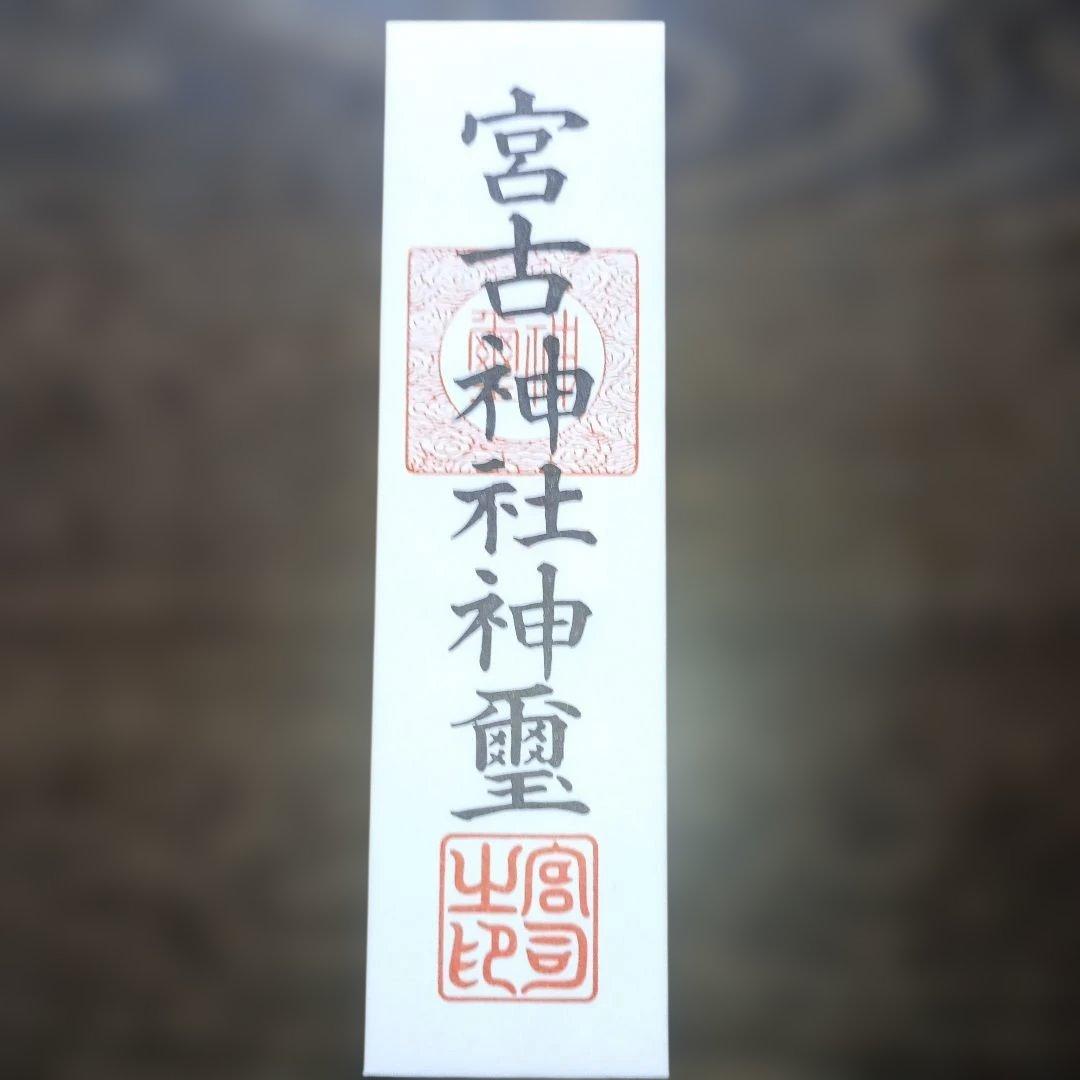 宮古神社神璽
神璽
宮司之印